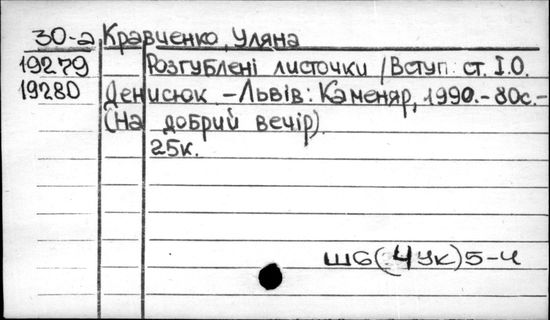 30-а Кравченко, Уляна
19279 Розгублені листочки /Вступ. ст. І.О.
19280 Денисюк. -Львів: Каменяр, 1990.- 80с.-
(На добрий вечір).
25к.
Ш6(4Ук)5-4